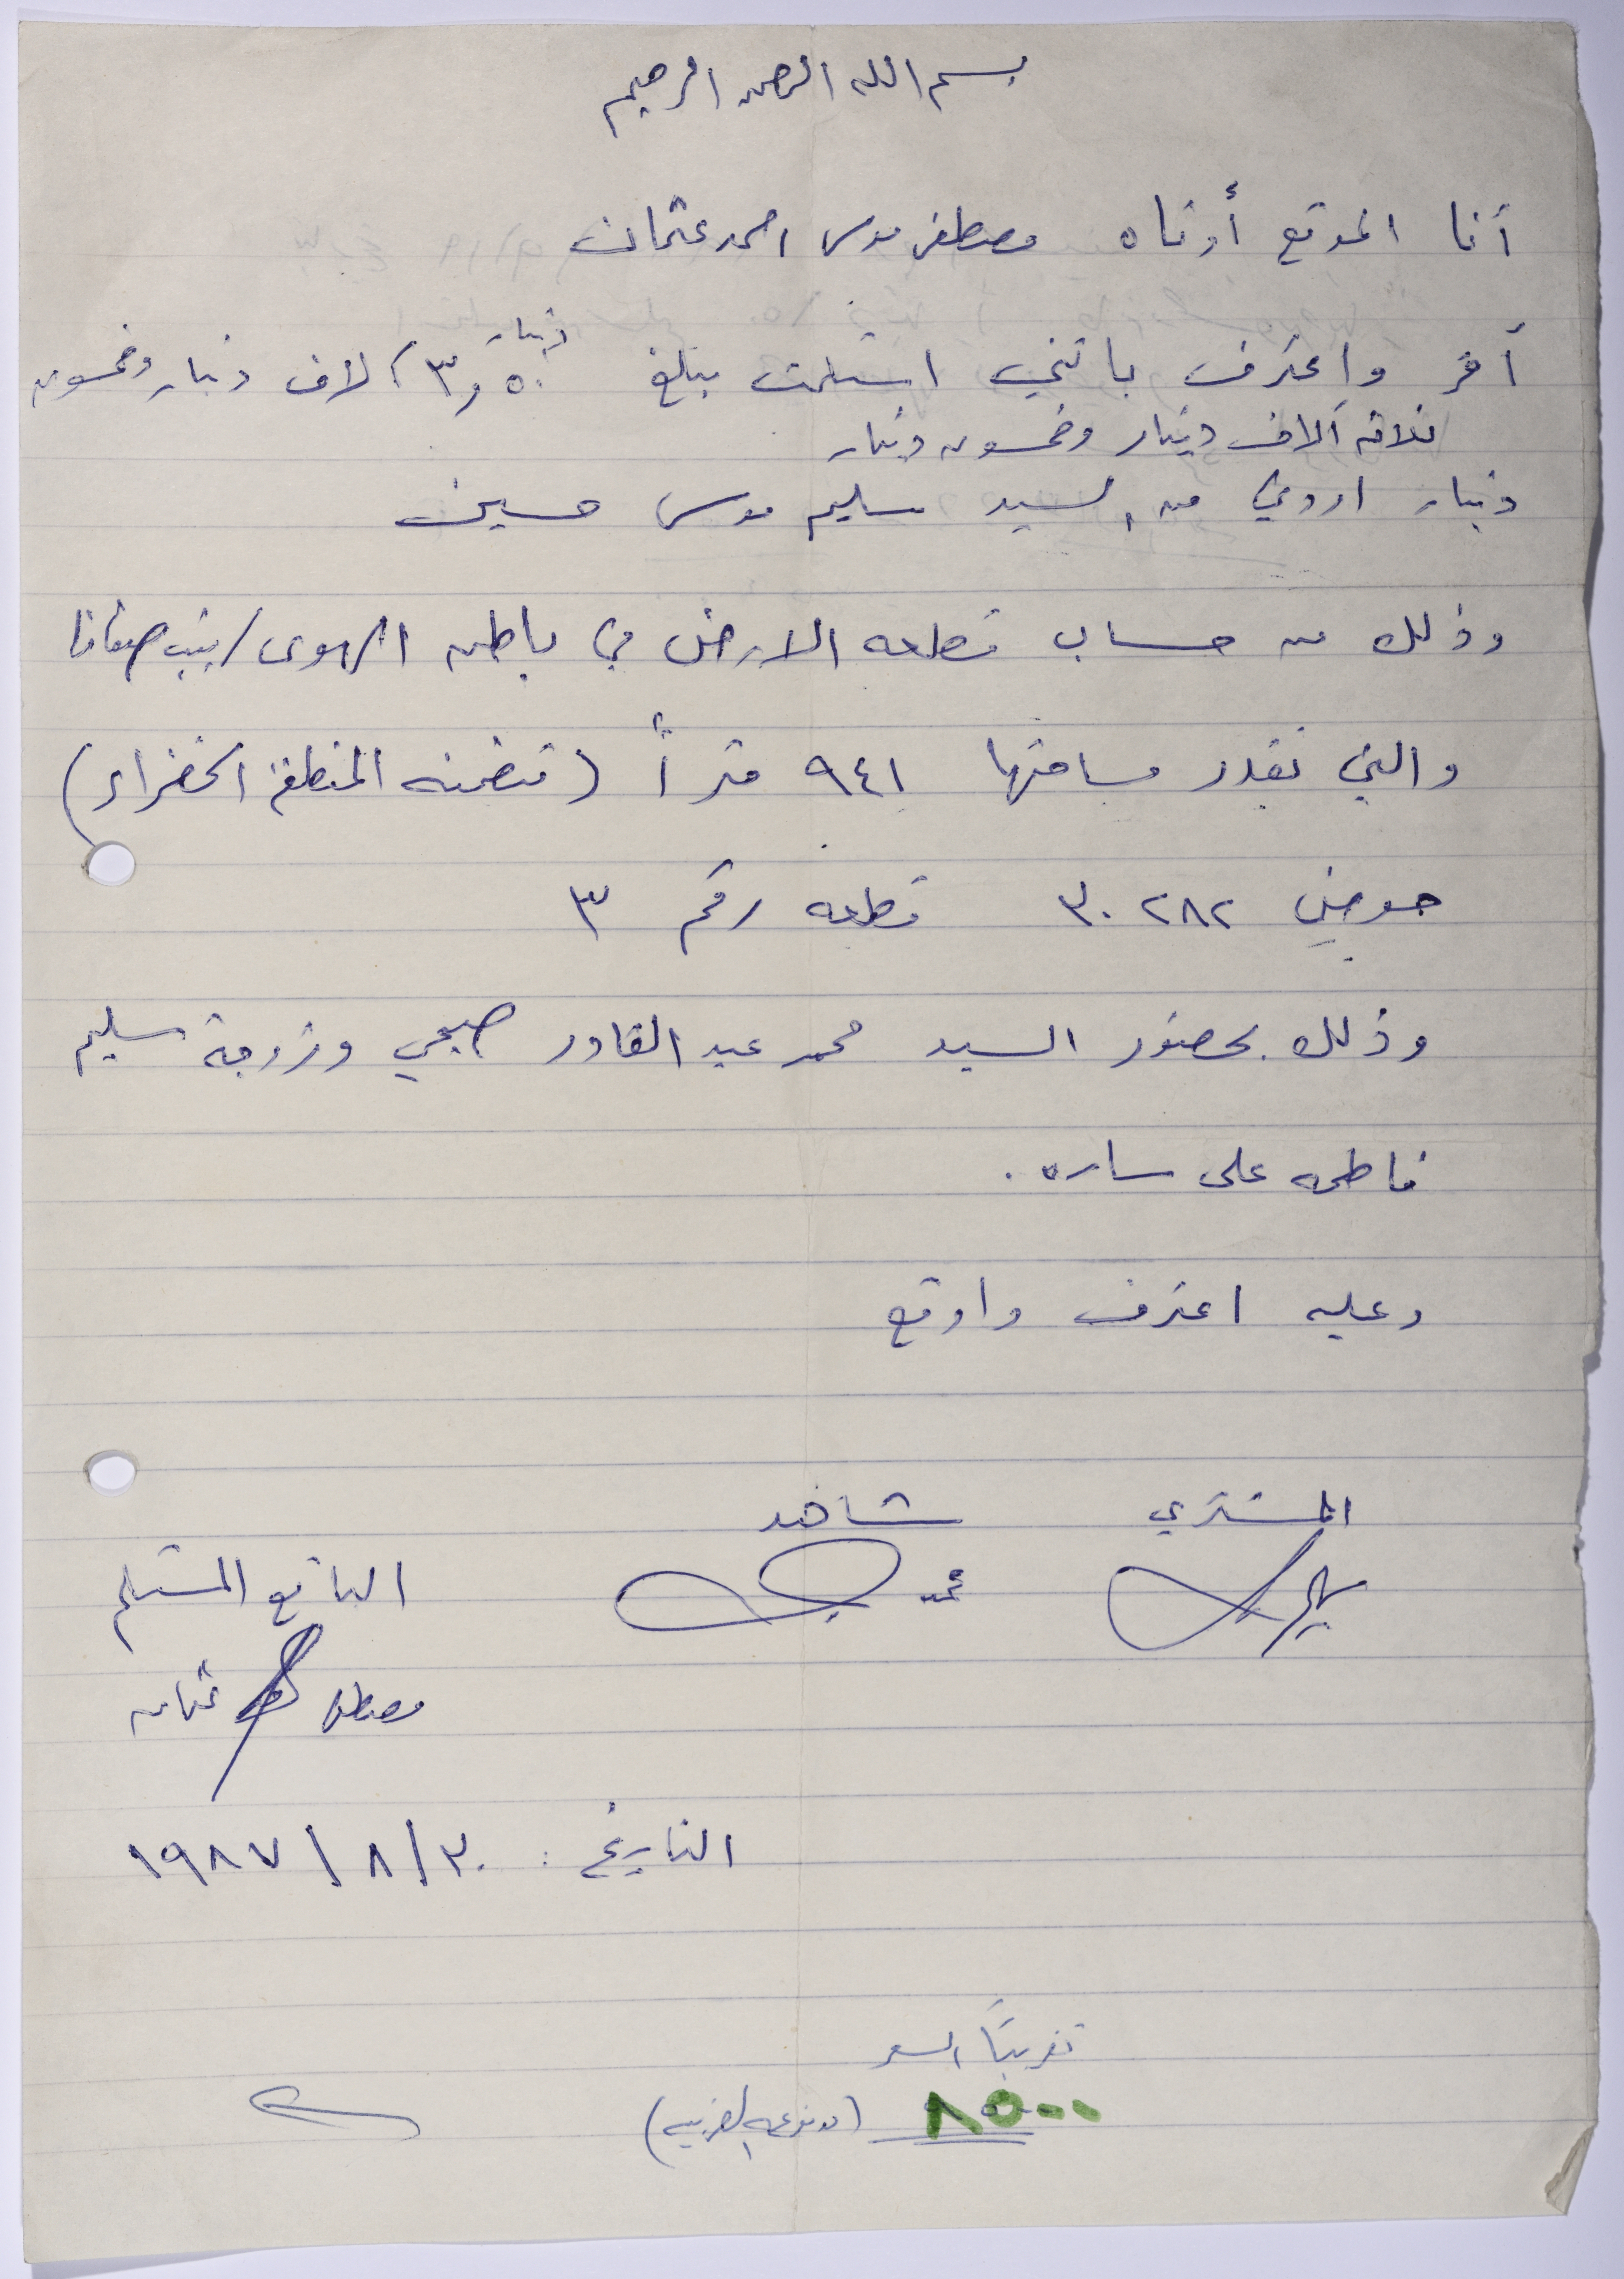 بسم الله الرحمن الرحيم
أنا الموقع أدناه مصطفى موسى احمد عثمان
أقر واعترف بانني استلمت مبلغ ٣,٠٥٠ دينار / ٣ آلاف دينار وخمسون
ثلاثه آلاف دينار وخمسون دينار
دينار اردني من السيد سليم موسى حسين
وذلك من حساب قطعه الارض في باطن الهوى / بيت صفافا
والتي تقدر مساحتها ٩٤١ متراً (متضمنه المنطقة الخضراء)
حوض ٣٠٢٨٢ قطعه رقم ٣
وذلك بحضور السيد محمد عبد القادر صبحي وزوجة سليم
فاطمه على ساره.
وعليه اعترف واوقع
المشتري شاهد
البائع المستلم
محمد
مصطفى عثمان
التاريخ : ٣٠ / ٨ / ١٩٨٧
تقريباً السعر
٨٥٠٠ (مدفوعه الضريبه)